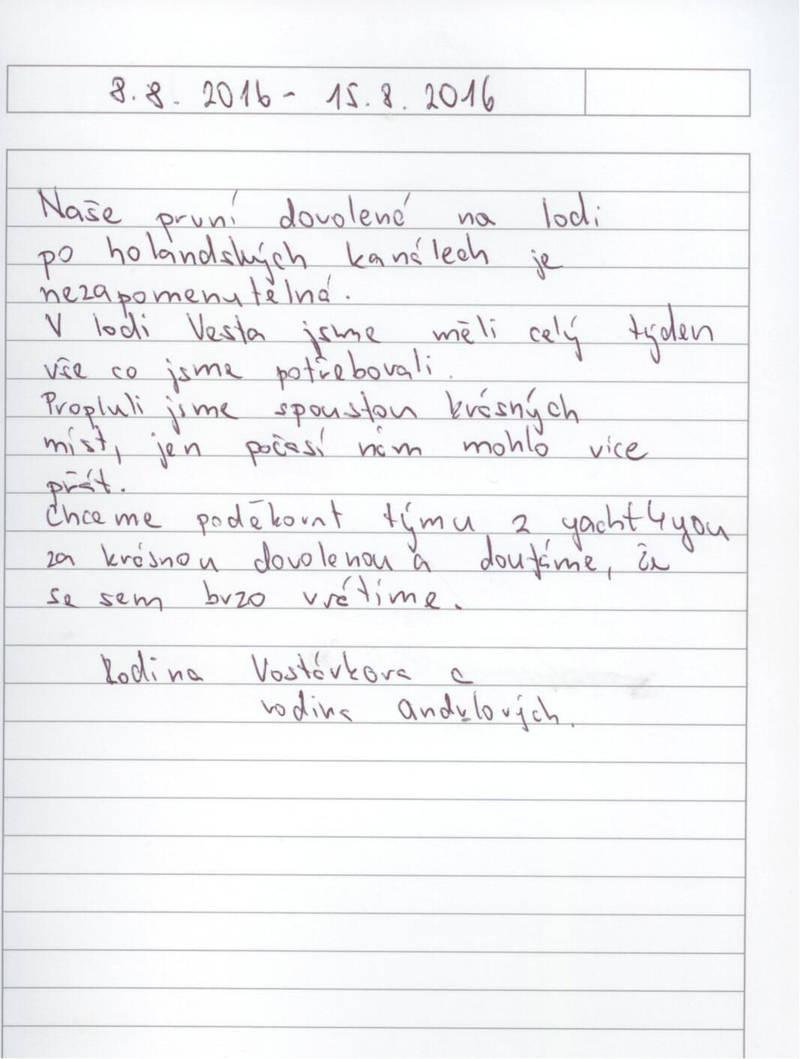 8.8. 2016 - 15.8. 2016
Naše první dovolená na lodi
po holandských kanálech je
nezapomenutelná.
V lodi Vesta jsme měli celý týden
vše co jsme potřebovali.
Propluli jsme spoustou krásných
míst, jen počasí nám mohlo více
přát.
Chceme poděkovat týmu z yacht4you
za krásnou dovolenou a doufáme, že
se sem brzo vrátíme.
Rodina Vostárkova a
rodina andrlových.